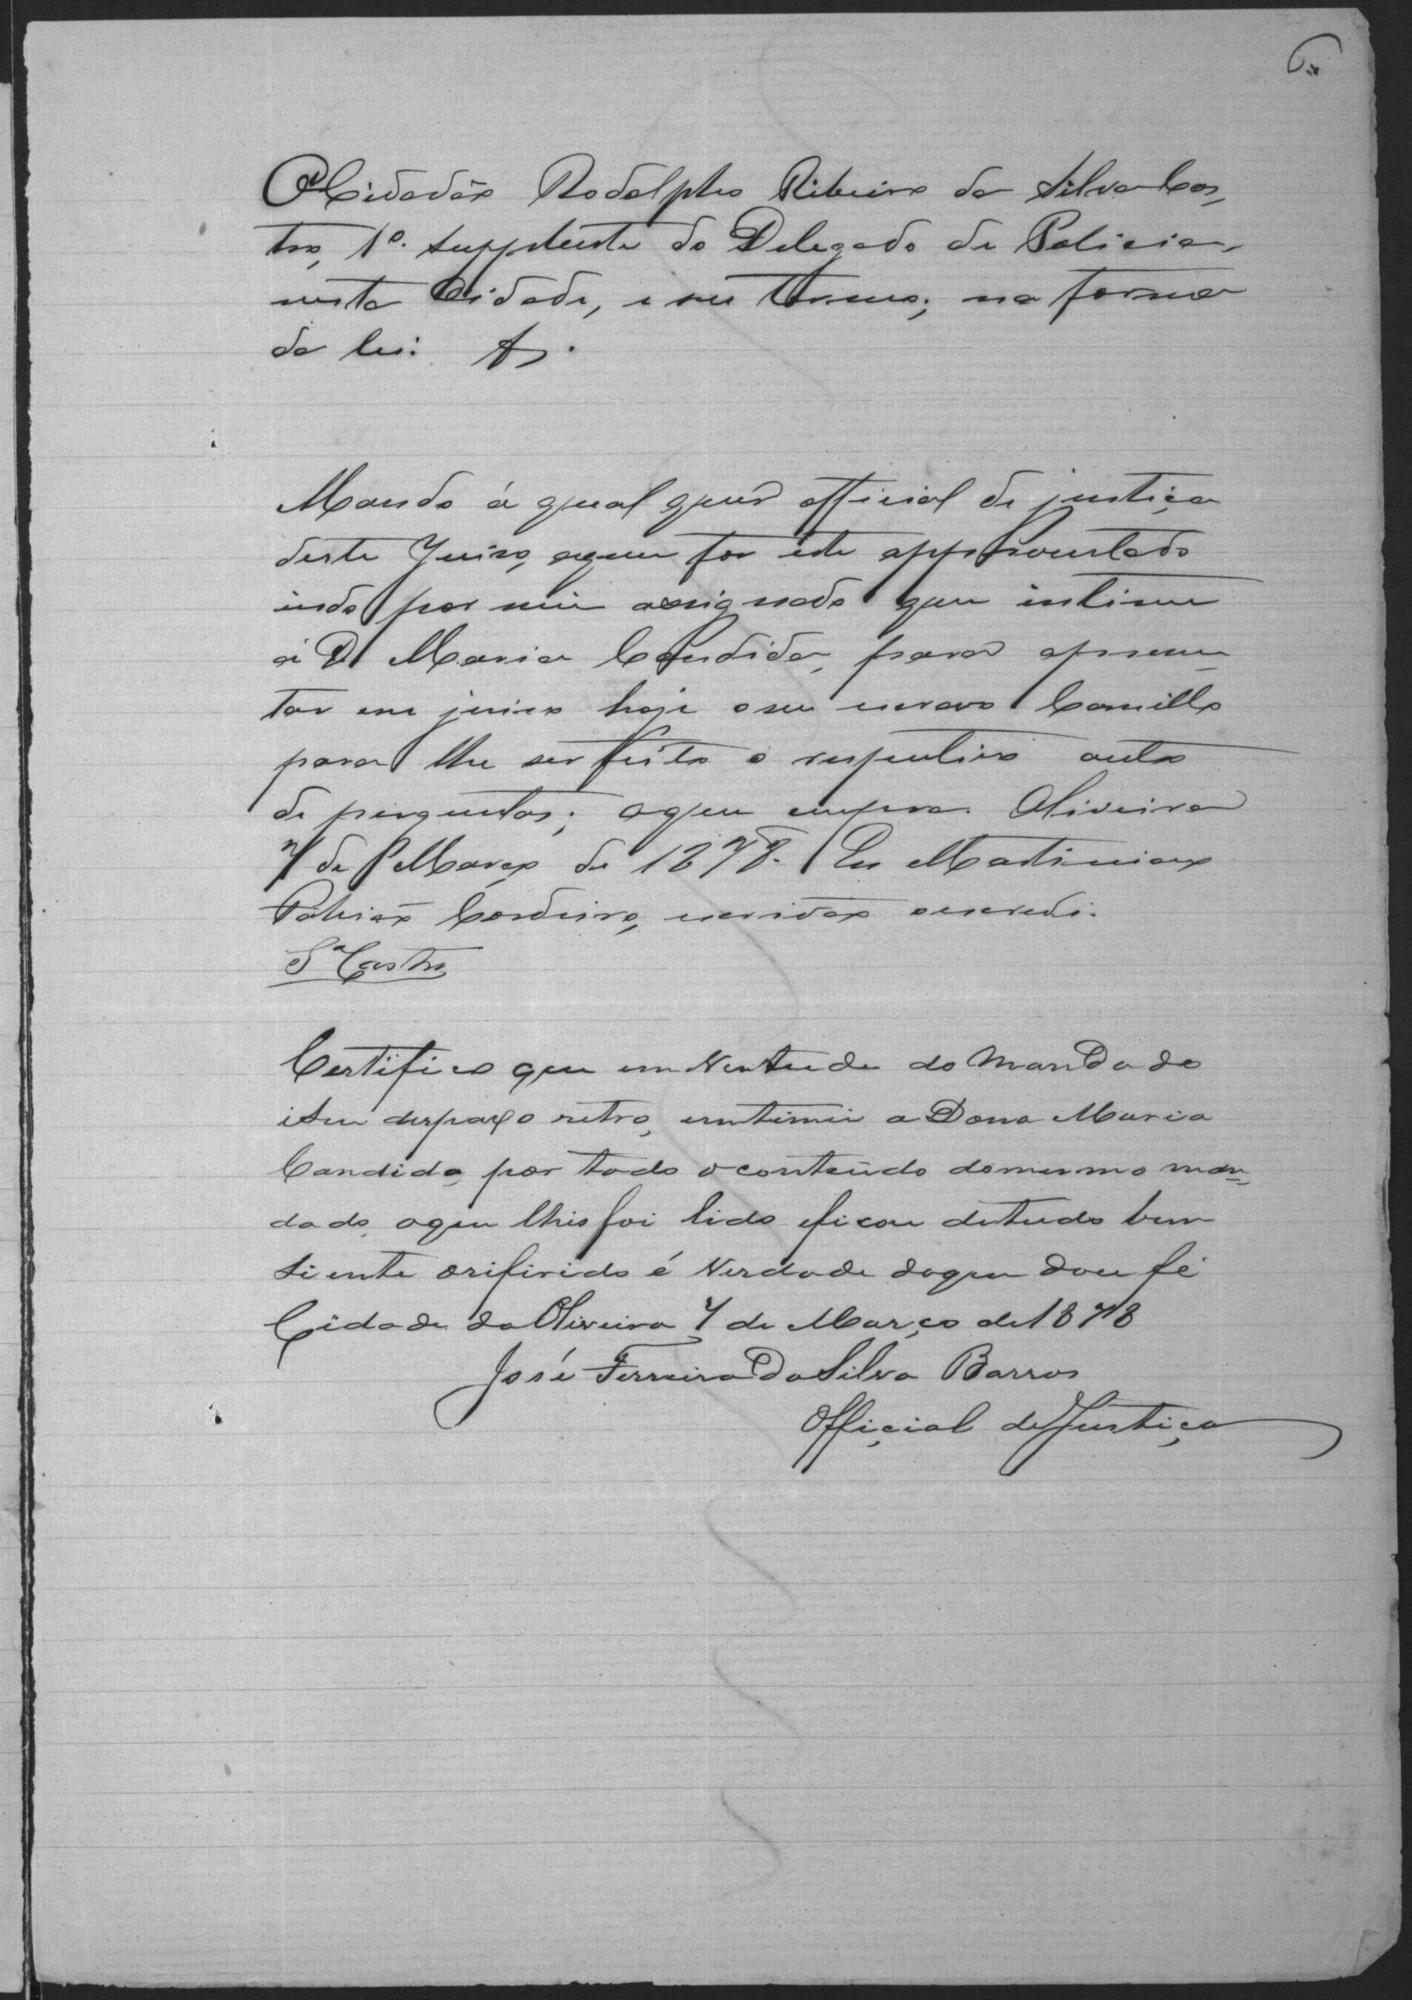 O Cidadão Rodolpho Ribeiro da Silva Cas,
tro, 1º. supplente do Delegado de Policia,
nesta Cidade, e seu termo; na forma
da lei.
Mando á qual quér official de justiça
deste Juizo, aquem for este appresentado
indo por mim assignado que intime
á D. Maria Candida, para apresen_
tar em juizo hoje o seu escravo Camillo
para lhe ser feito o respectivo auto
de perguntas; o que cumpra. Oliveira
7 de Março de 1878. Eu Martiniano
Cordeiro, escrivão o escrevi.
Sª Castro
Certifico que em Vertude do Mandado
e seu despaxo retro, emtimei a Dona Maria
Candida, por todo o conteúdo do mesmo man=
dado, o que lhis foi lido e ficou de tudo bem
siente o rifirido é Verdade do que dou fé
Cidade da Oliveira 7 de Março de 1878
José Ferreira Da Silva Barros
Official de Justiça